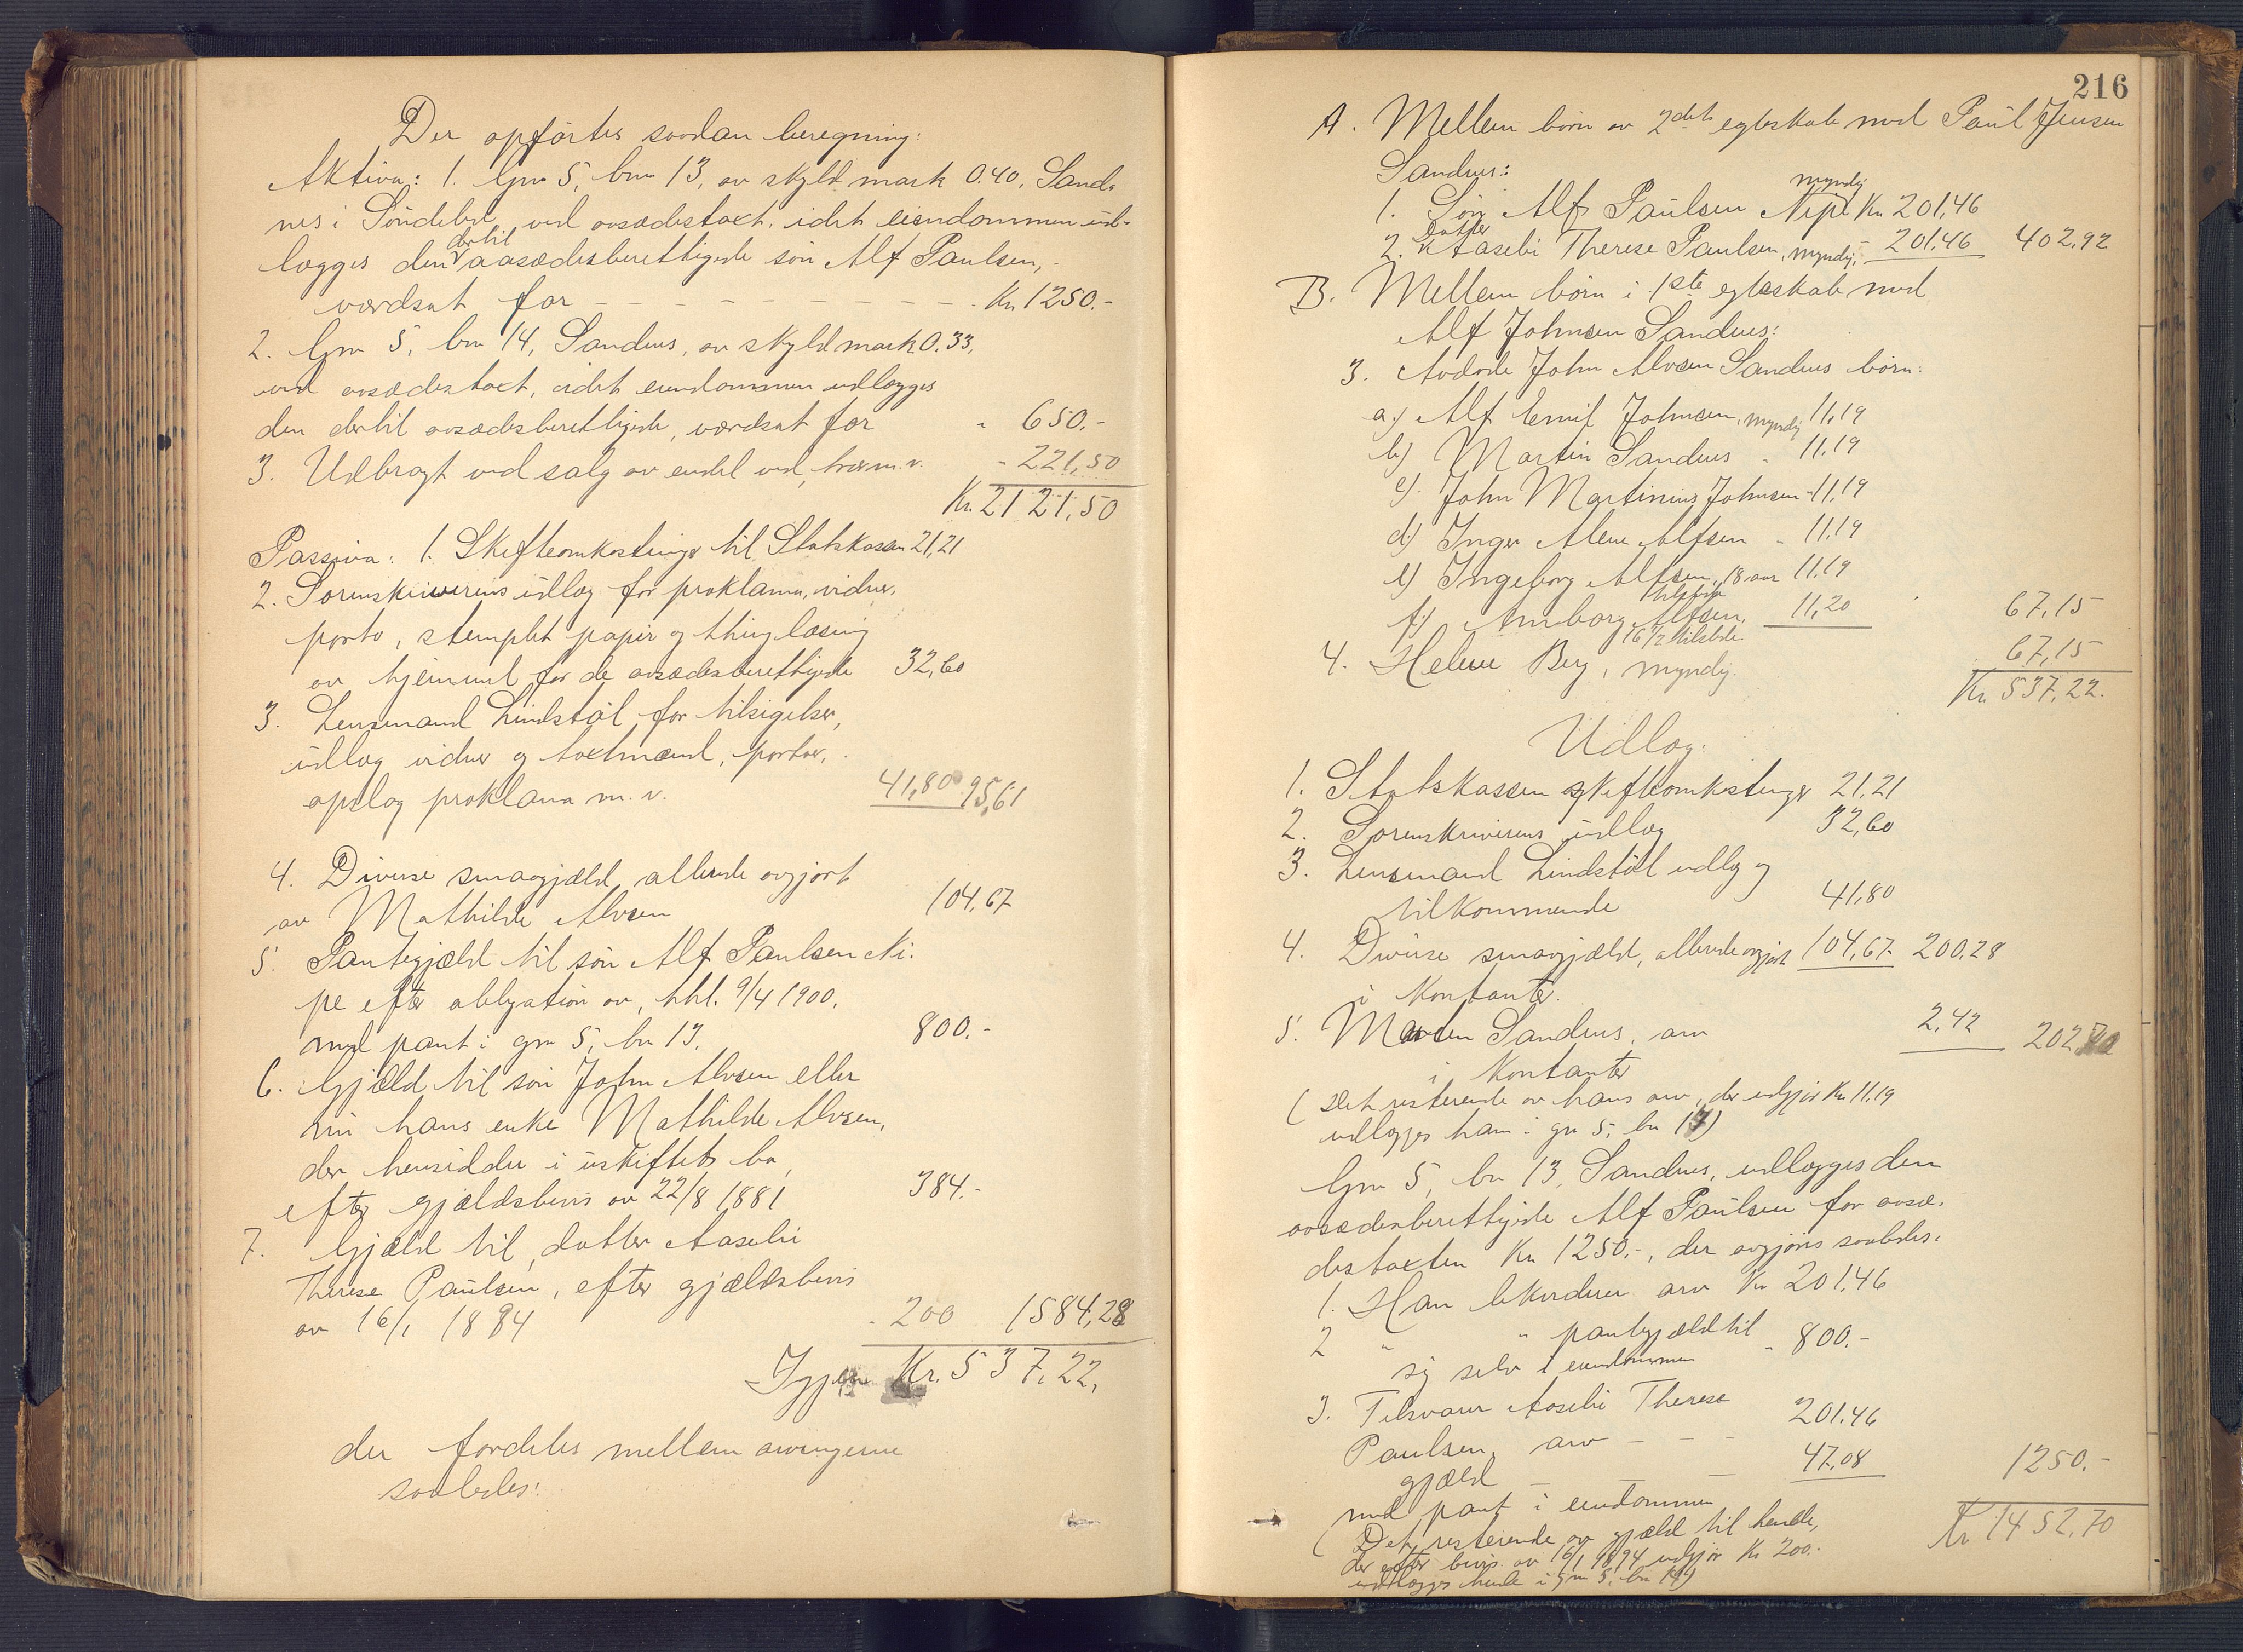 Der opførtes saadan beregning:
Aktiva: 1. Gno 5, bno 13, av skyld mark 0.40, Sand-
nes i Söndeled, ved aasædestaxt, idet eiendommen ud-
lægges den dertil aasædesberettigede sön Alf Paulsen,
værdsat for - - - - - - - - - - Kr. 1250.-
2. Gno 5, bno 14, Sandnes, av skyld mark 0.33,
ved aasædestaxt, idet eiendommen udlægges
den dertil aasædesberettigede, værdsat for " 650.-
3. Udbragt ved salg av endel ved, trær m. v. - 221,50
Kr. 2121,50
Passiva: 1. Skifteomkostninger til Statskassen 21,21
2. Sorenskriverens udlæg for proklama, vidner,
porto, stemplet papir og thinglæsing
av hjemmel for de aasædesberettigede 32,60
3. Lensmand Lindstöl for tilsigelser,
udlæg vidner og taxtmænd, portoer,
opslag proklama m. v. 41,80 95,61
4. Diverse smaagjæld, allerede avgjort
av Mathilde Alvsen 104,67
5. Pantegjæld til sön Alf Paulsen Ni-
pe efter obligation av, thl. 9/4 1900,
med pant i gno 5, bno 13. 800.-
6. Gjæld til sön John Alvsen eller
nu hans enke Mathilde Alvsen,
der hensidder i uskiftet bo,
efter gjældsbevis av 22/8 1881 384.-
7. Gjæld til datter Aasebi
Therese Paulsen, efter gjældsbevis
av 16/1 1894 - 200 1584,28
Igjen Kr. 537,22,
der fordeles mellem arvingerne
saaledes:
216
A. Mellem börn av 2det egteskab med Paul Jensen
Sandnes:
1. Sön Alf Paulsen Nipe myndig Kr 201,46
2. Datter Aasebi Therese Paulsen, myndig, - 201,46 402,92
B. Mellem börn i 1ste egteskab med
Alf Johnsen Sandnes:
3. Avdöde John Alvsen Sandnes börn:
a.) Alf Emil Johnsen, myndig 11,19
b) Martin Sandnes " 11,19
c). John Martinius Johnsen - 11,19
d) Inger Alene Alfsen " 11,19
e) Ingeborg Alfsen, 18 aar 11,19
tilstede
f) Amborg Alfsen, 11,20 67,15
16 1/2 tilstede
4. Helene Berg, myndig. 67,15
Kr. 537,22.
Udlæg:
1. Statskassen skifteomkostninger 21,21
2. Sorenskriverens udlæg 32,60
3. Lensmand Lindstöl udlæg og
tilkommende 41,80
4. Diverse smaagjæld, allerede avgjort 104,67 200,28
i Kontanter.
5. Martin Sandnes, arv 2,42 202,70
i Kontanter
(Det resterende av hans arv, der udgjör Kr. 11.19
udlægges ham i gno 5, bno 14)
Gno 5, bno 13, Sandnes, udlægges den
aasædesberettigede Alf Paulsen for aasæ-
destaxten Kr. 1250.-, der avgjöres saaledes:
1. Han likviderer arv Kr 201,46
2 " " pantegjæld til
sig selv i eiendommen " 800.-
3. Tilsvarer Aasebi Therese
Paulsen, arv - - - 201.46
gjæld - - - 47,08 1250.-
med pant i eiendommen
(Det resterende av gjæld til hende,
der efter bevis av 16/1 1894 udgjör Kr 200.-
udlægges hende i gno 5, bno 14)
Kr 1452,70